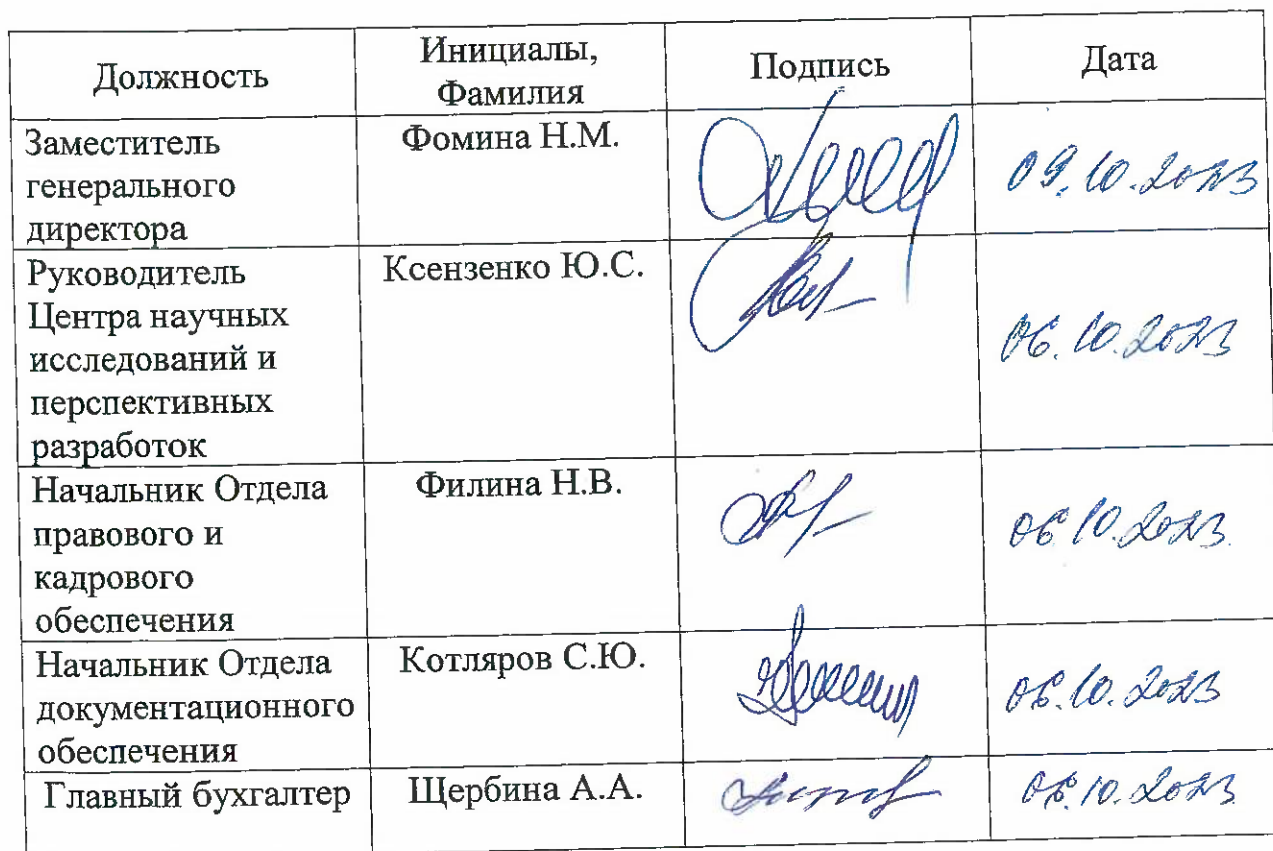 Должность
Инициалы,
Фамилия
Подпись
Дата
Заместитель
генерального
директора
Фомина Н.М.
09.10.2023
Руководитель
Центра научных
исследований и
перспективных
разработок
Ксензенко Ю.С.
06.10.2023
Начальник Отдела
правового и
кадрового
обеспечения
Филина Н.В.
06.10.2023
Начальник Отдела
документационного
обеспечения
Котляров С.Ю.
06.10.2023
Главный бухгалтер
Щербина А.А.
06.10.2023